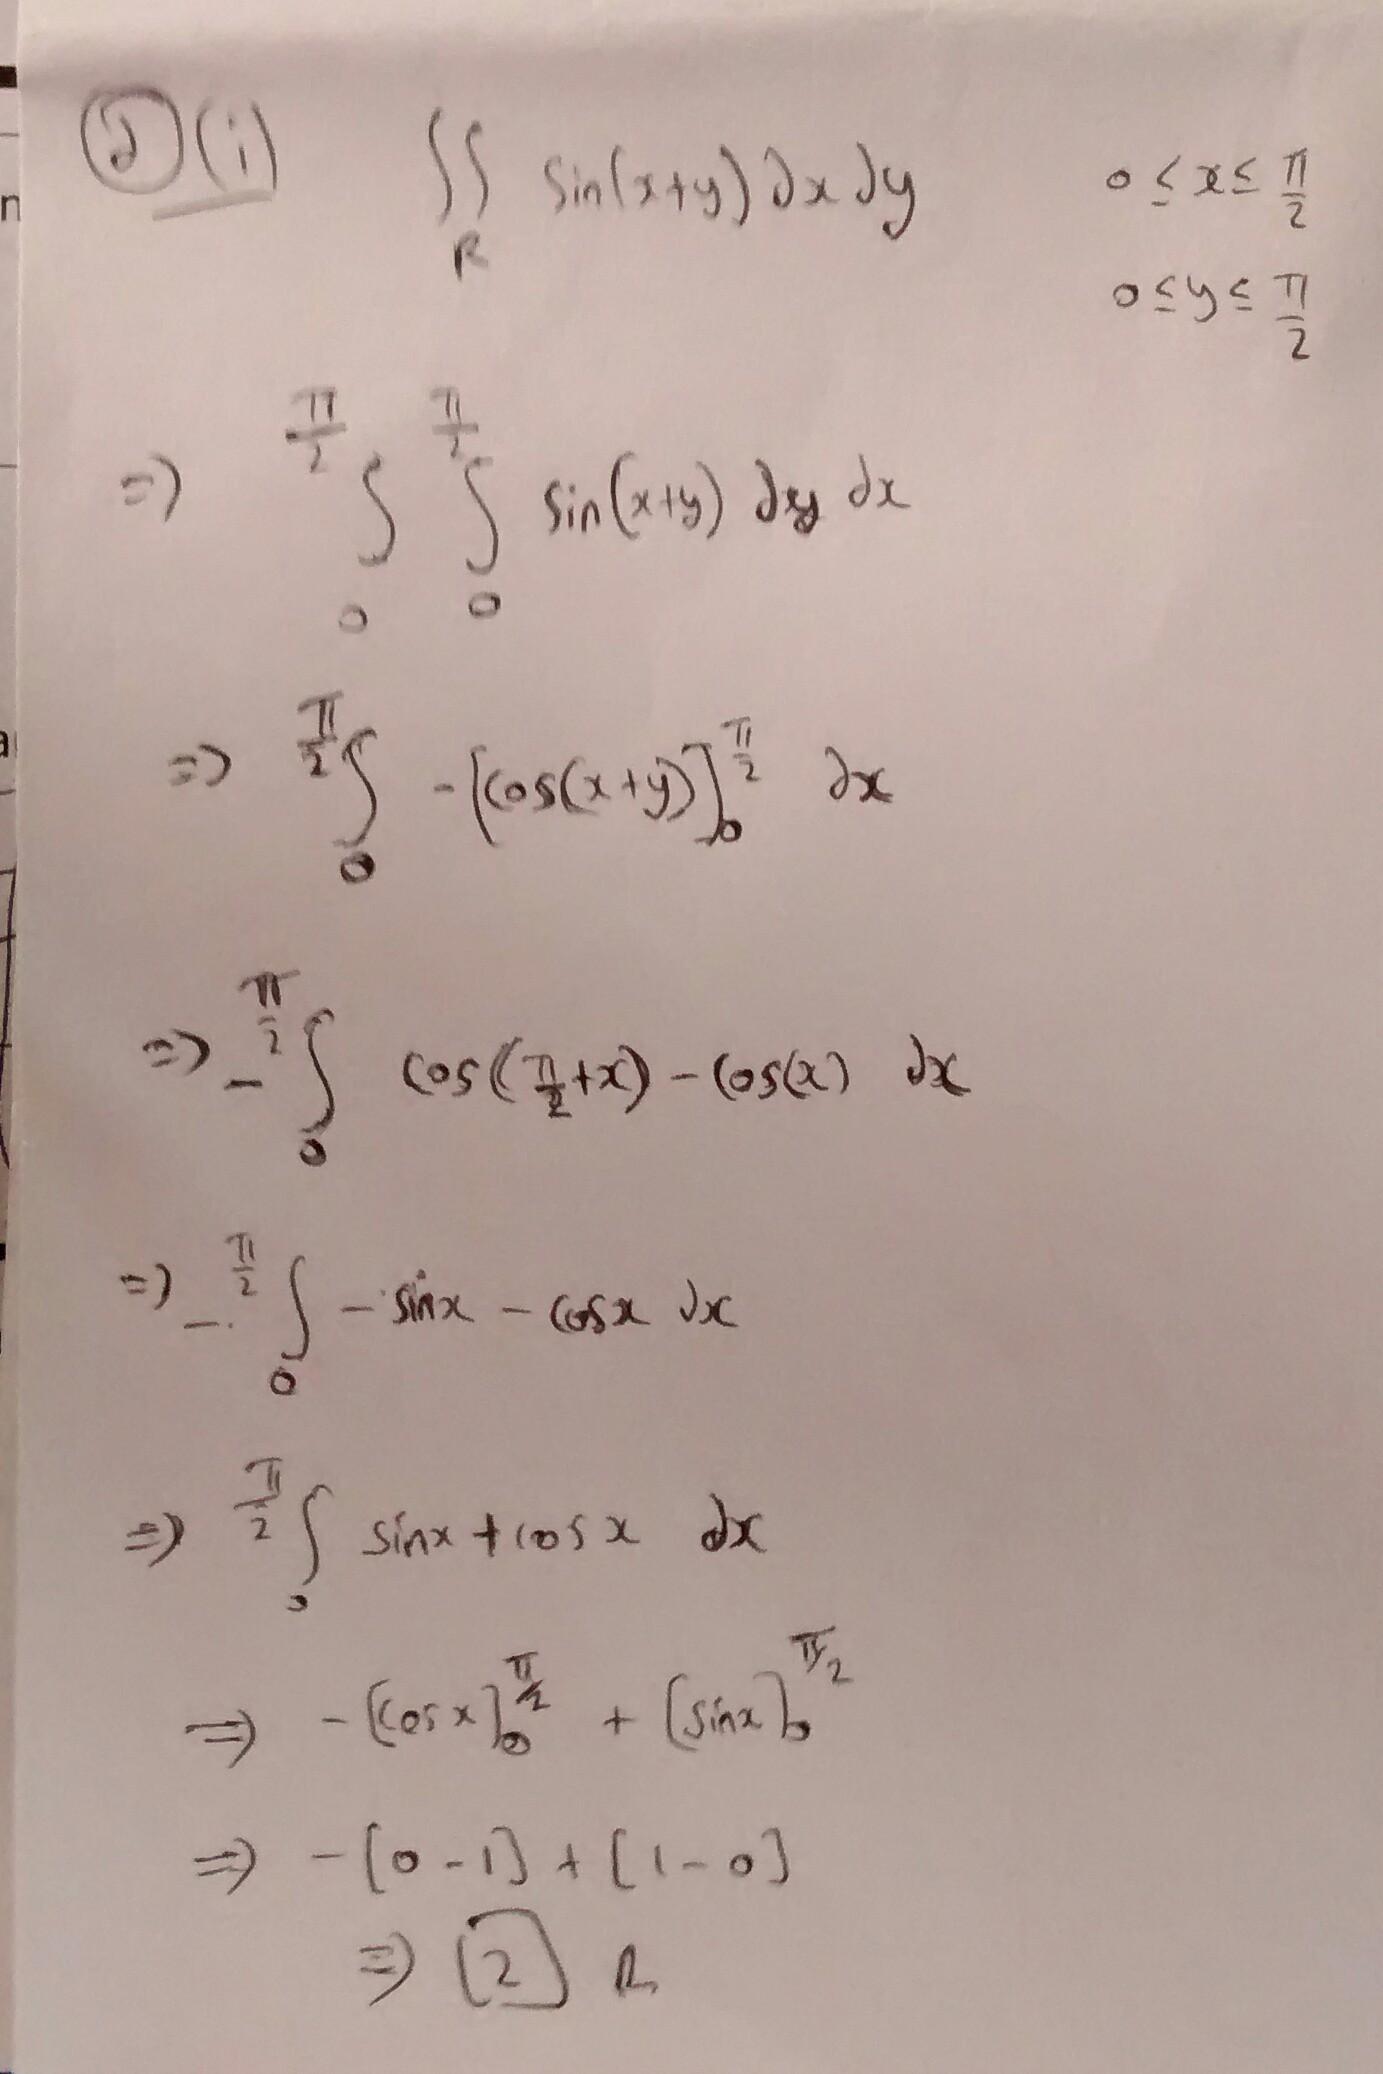 ② (i) ∬_R sin(x+y) ∂x ∂y 0 ≤ x ≤ π/2
0 ≤ y ≤ π/2
=> ∫_0^{π/2} ∫_0^{π/2} sin(x+y) ∂y ∂x
=> ∫_0^{π/2} -[cos(x+y)]_0^{π/2} ∂x
=> -∫_0^{π/2} cos(π/2+x) - cos(x) ∂x
=> -∫_0^{π/2} -sinx - cosx ∂x
=> ∫_0^{π/2} sinx + cosx ∂x
=> -[cosx]_0^{π/2} + [sinx]_0^{π/2}
=> -[0-1] + [1-0]
=> [2]